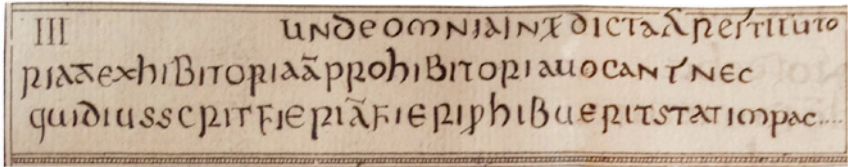 III undeomniainχdictaārestituto
riaāexhibitoriaāprohibitoriauocant̄nec
quidiusscritfieriāfieriꝓhibueritstatimpac....